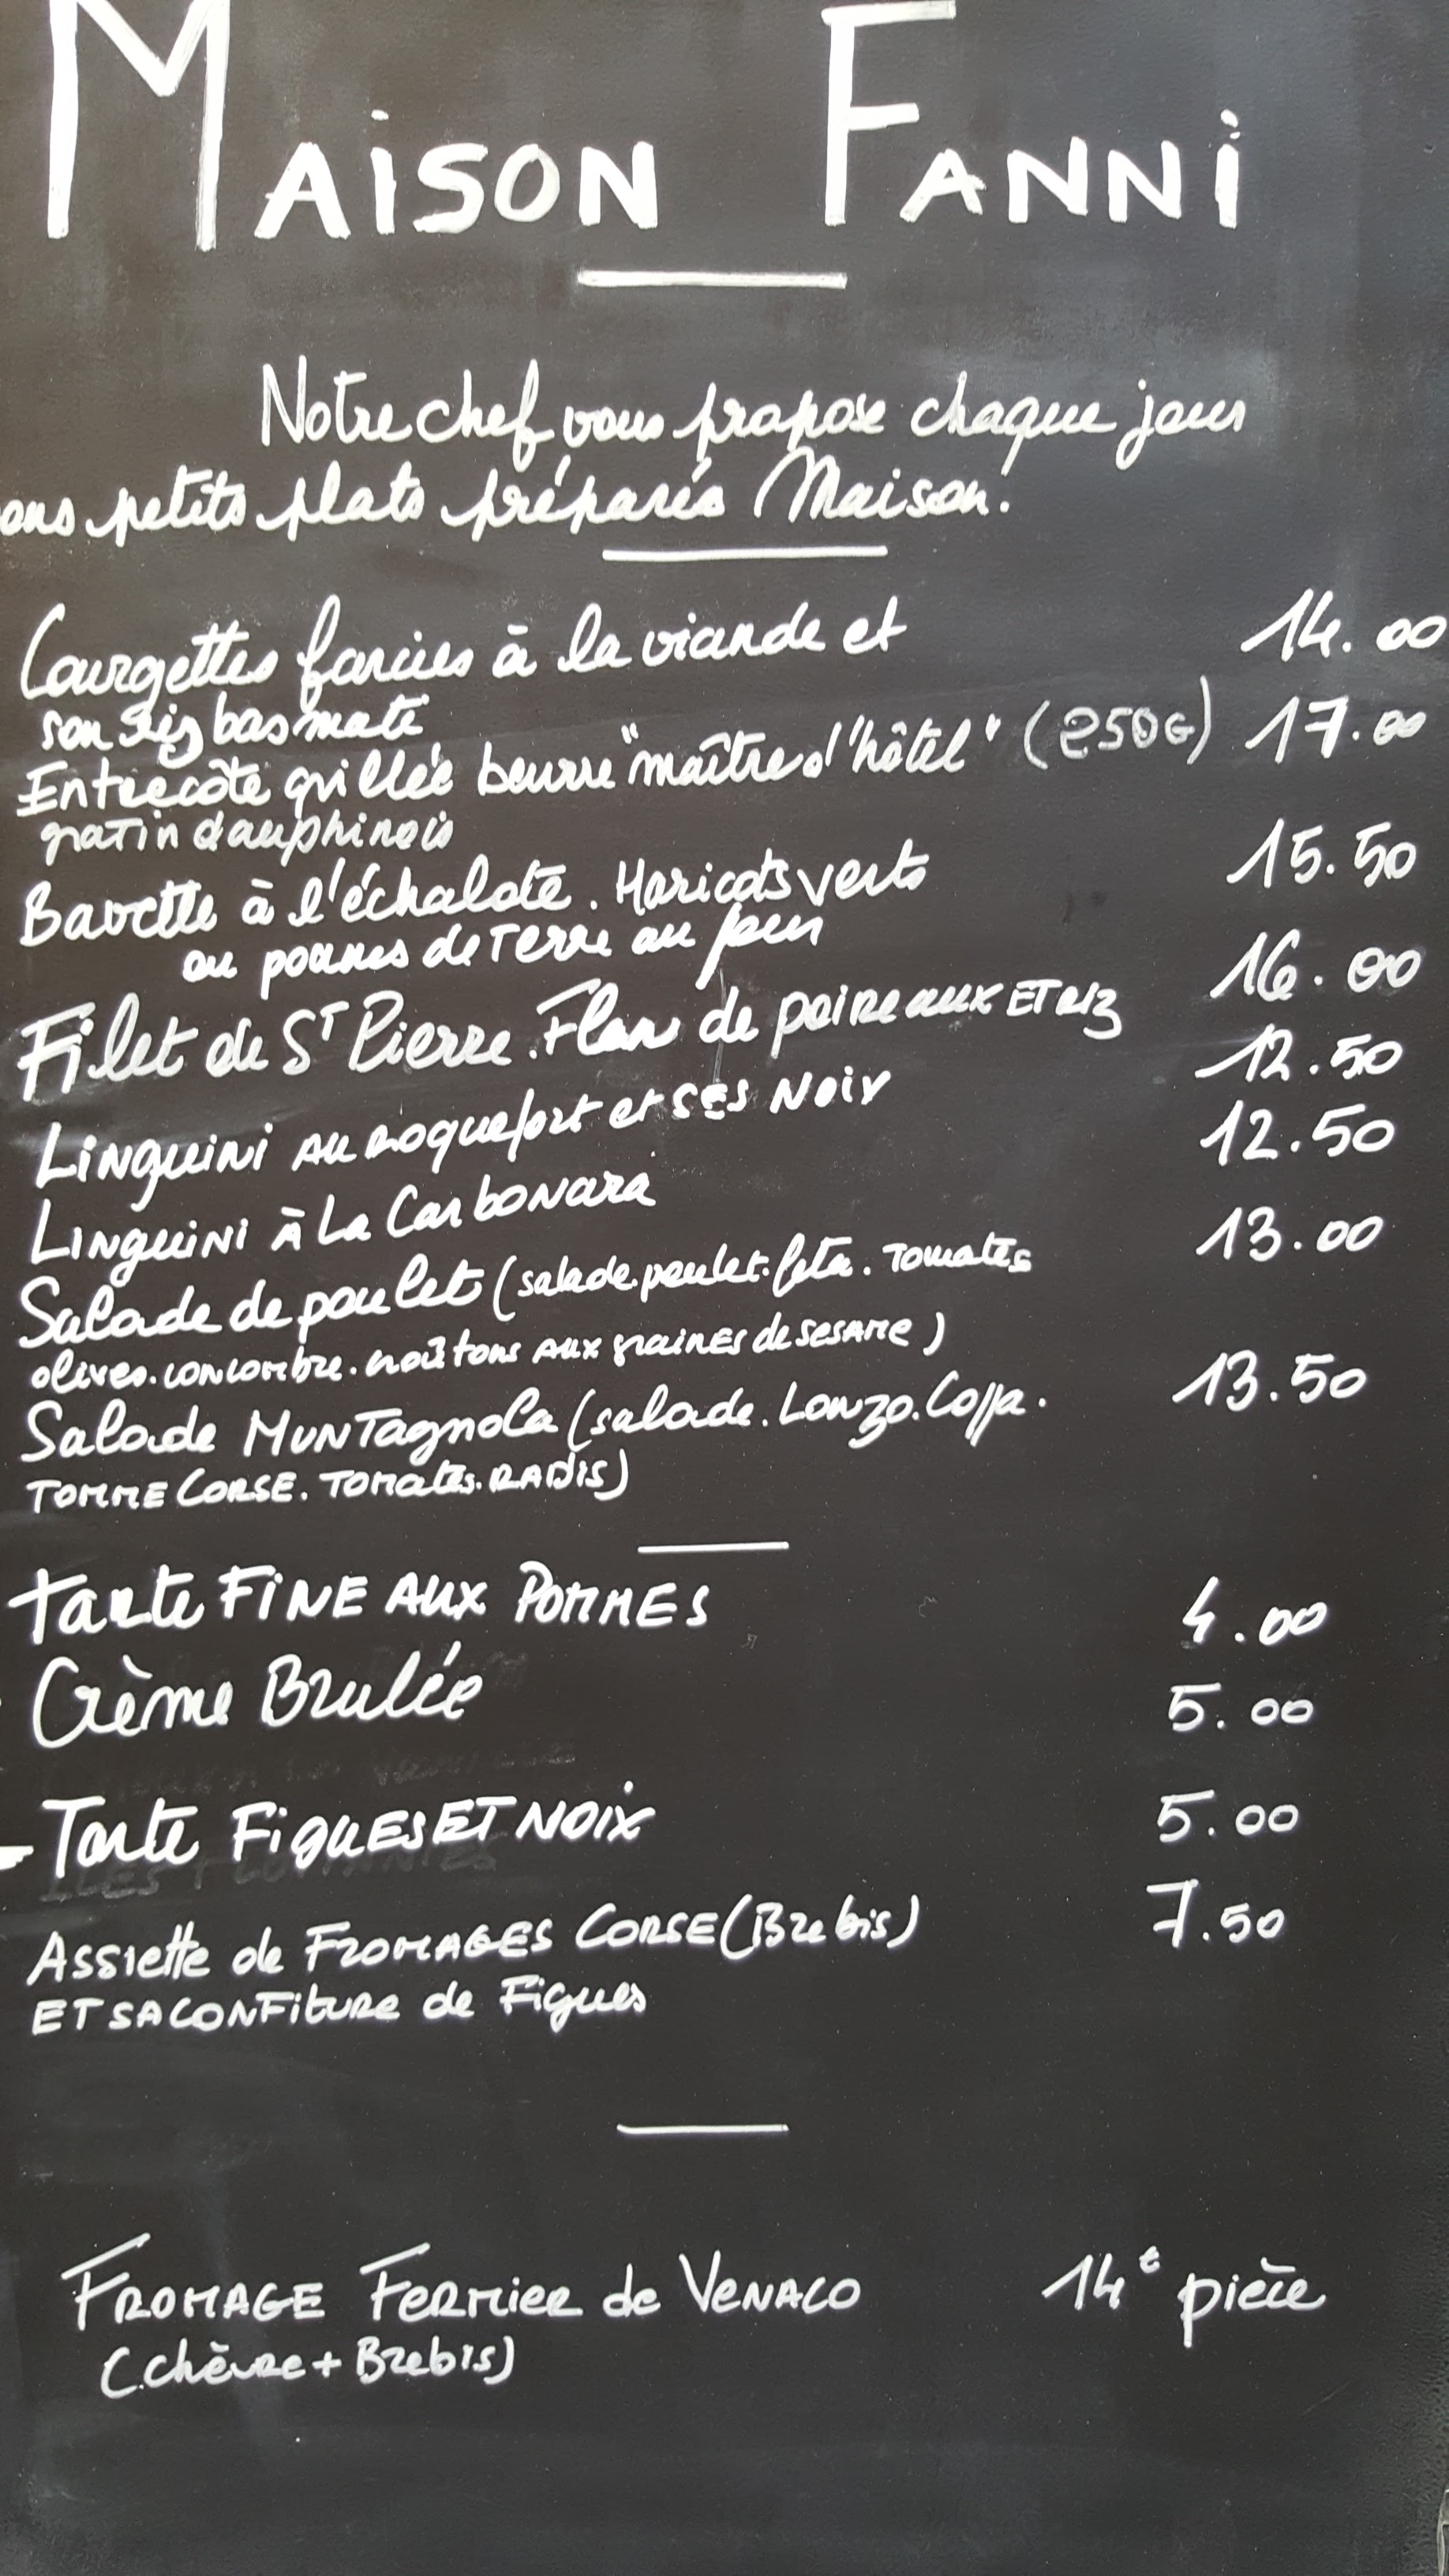 MAISON FANNI
Notre chef vous propose chaque jour
petits plats préparés Maison.
Courgettes farcies à la viande et 14.00
son riz basmati
Entrecôte grillée beurre "maître d'hôtel" (250G) 17.00
gratin dauphinois
Bavette à l'échalote. Haricots verts 15.50
ou pommes de Terre au four
Filet de ST Pierre. Flan de poireaux ET RIZ 16.00
Linguini au roquefort et SES NOIX 12.50
Linguini À La Carbonara 12.50
Salade de poulet (salade.poulet.feta. Tomates 13.00
olives.concombre.croûtons AUX graines de sesame)
Salade MUNTagnola (salade. Lonzo. Coppa. 13.50
TOMME CORSE. Tomates. RADIS)
Tarte FINE AUX POMMES 4.00
Crème Brulée 5.00
Tarte FiguES ET NOIX 5.00
Assiette de FROMAGES CORSE (Brebis) 7.50
ET SA CONFiture de Figues
FROMAGE Fermier de VENACO 14€ pièce
(Chèvre + Brebis)